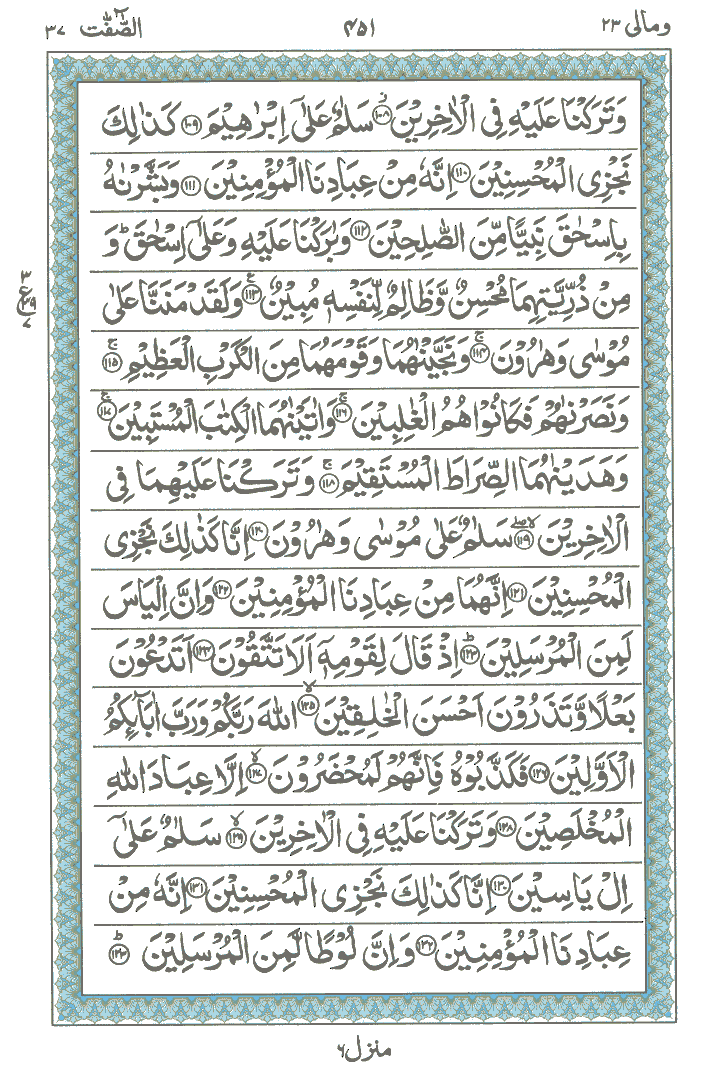 ومالی ۲۳ ۴۵۱ الصّٰٓفّٰت ۳۷
وَتَرَكْنَا عَلَيْهِ فِی الْاٰخِرِيْنَ ۝۱۰۸ سَلٰمٌ عَلٰۤی اِبْرٰهِيْمَ ۝۱۰۹ كَذٰلِكَ
نَجْزِی الْمُحْسِنِيْنَ ۝۱۱۰ اِنَّهٗ مِنْ عِبَادِنَا الْمُؤْمِنِيْنَ ۝۱۱۱ وَبَشَّرْنٰهُ
بِاِسْحٰقَ نَبِيًّا مِّنَ الصّٰلِحِيْنَ ۝۱۱۲ وَبٰرَكْنَا عَلَيْهِ وَعَلٰۤی اِسْحٰقَ ؕ وَ
مِنْ ذُرِّيَّتِهِمَا مُحْسِنٌ وَّظَالِمٌ لِّنَفْسِهٖ مُبِيْنٌ ۝۱۱۳ وَلَقَدْ مَنَنَّا عَلٰی
۳
ع
۷
مُوْسٰی وَهٰرُوْنَ ۝۱۱۴ وَنَجَّيْنٰهُمَا وَقَوْمَهُمَا مِنَ الْكَرْبِ الْعَظِيْمِ ۝۱۱۵
وَنَصَرْنٰهُمْ فَكَانُوْا هُمُ الْغٰلِبِيْنَ ۝۱۱۶ وَاٰتَيْنٰهُمَا الْكِتٰبَ الْمُسْتَبِيْنَ ۝۱۱۷
وَهَدَيْنٰهُمَا الصِّرَاطَ الْمُسْتَقِيْمَ ۝۱۱۸ وَتَرَكْنَا عَلَيْهِمَا فِی
الْاٰخِرِيْنَ ۝۱۱۹ سَلٰمٌ عَلٰی مُوْسٰی وَهٰرُوْنَ ۝۱۲۰ اِنَّا كَذٰلِكَ نَجْزِی
الْمُحْسِنِيْنَ ۝۱۲۱ اِنَّهُمَا مِنْ عِبَادِنَا الْمُؤْمِنِيْنَ ۝۱۲۲ وَاِنَّ اِلْيَاسَ
لَمِنَ الْمُرْسَلِيْنَ ۝۱۲۳ اِذْ قَالَ لِقَوْمِهٖۤ اَلَا تَتَّقُوْنَ ۝۱۲۴ اَتَدْعُوْنَ
بَعْلًا وَّتَذَرُوْنَ اَحْسَنَ الْخٰلِقِيْنَ ۝۱۲۵ اللّٰهَ رَبَّكُمْ وَرَبَّ اٰبَآئِكُمُ
الْاَوَّلِيْنَ ۝۱۲۶ فَكَذَّبُوْهُ فَاِنَّهُمْ لَمُحْضَرُوْنَ ۝۱۲۷ اِلَّا عِبَادَ اللّٰهِ
الْمُخْلَصِيْنَ ۝۱۲۸ وَتَرَكْنَا عَلَيْهِ فِی الْاٰخِرِيْنَ ۝۱۲۹ سَلٰمٌ عَلٰۤی
اِلْ يَاسِيْنَ ۝۱۳۰ اِنَّا كَذٰلِكَ نَجْزِی الْمُحْسِنِيْنَ ۝۱۳۱ اِنَّهٗ مِنْ
عِبَادِنَا الْمُؤْمِنِيْنَ ۝۱۳۲ وَاِنَّ لُوْطًا لَّمِنَ الْمُرْسَلِيْنَ ۝۱۳۳
منزل ۶